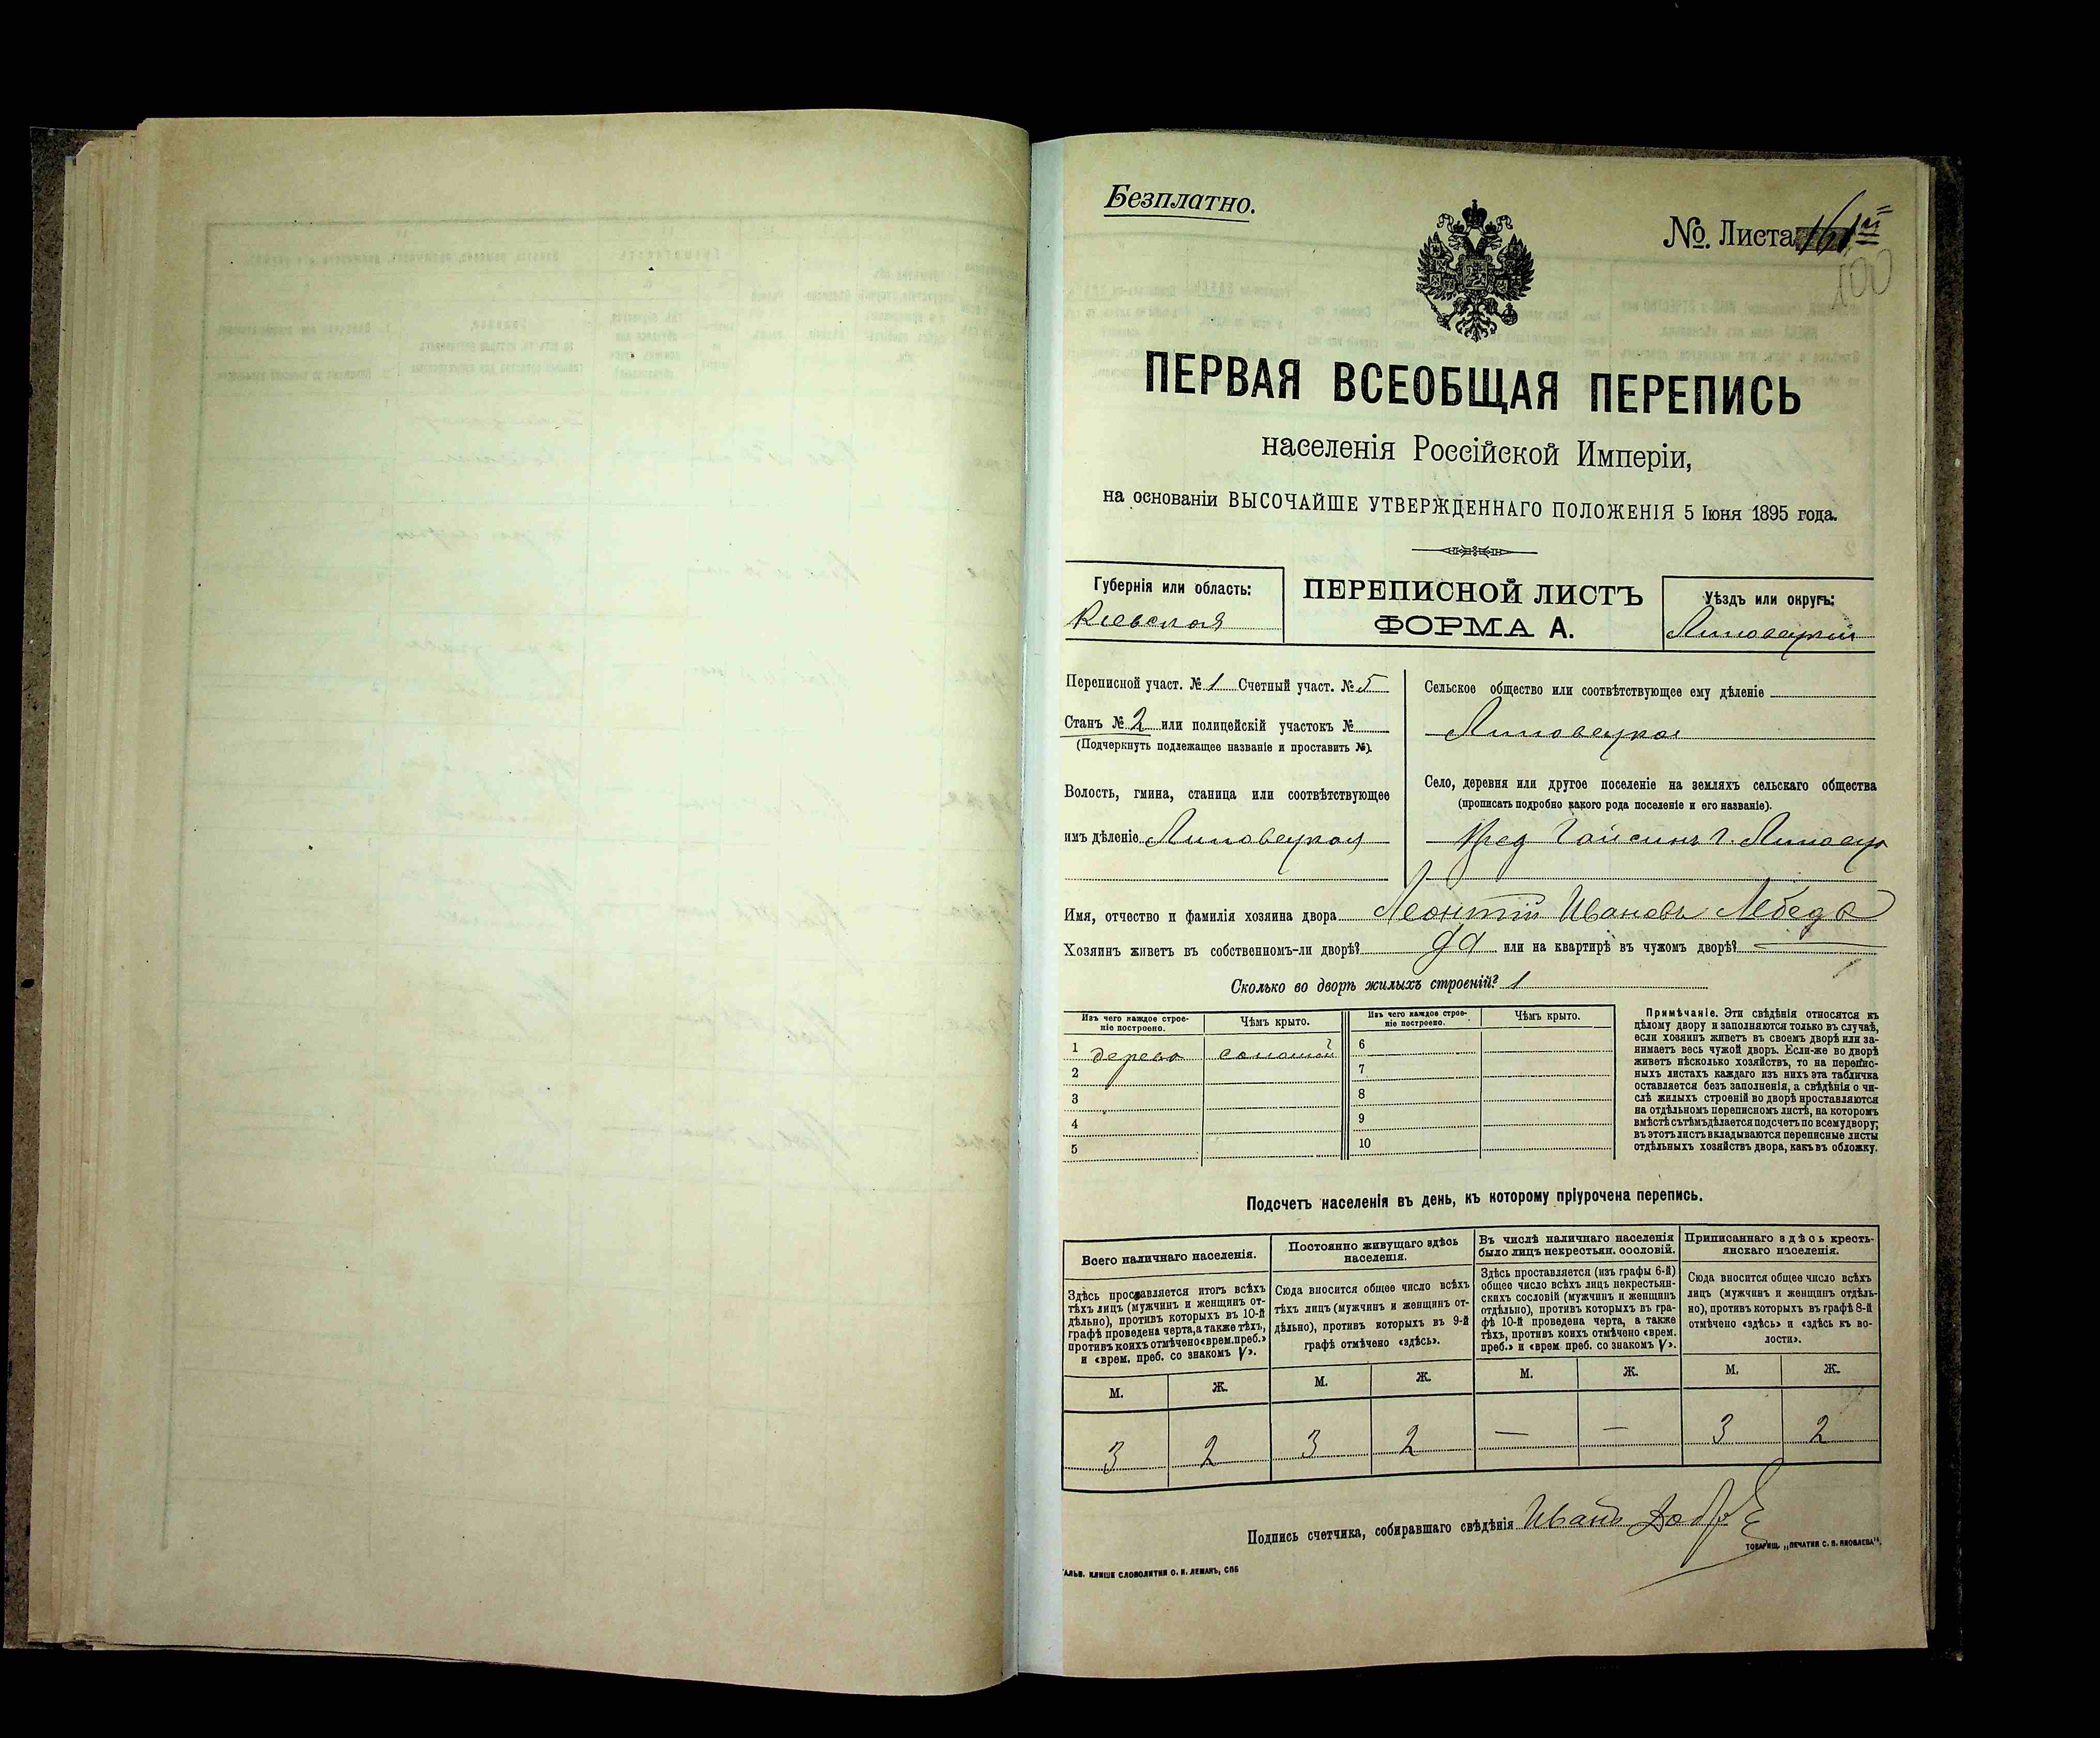 Безплатно.
№. Листа 161й
100
ПЕРВАЯ ВСЕОБЩАЯ ПЕРЕПИСЬ
населенія Россійской Имперіи,
на основаніи ВЫСОЧАЙШЕ УТВЕРЖДЕННАГО ПОЛОЖЕНІЯ 5 Іюня 1895 года.
Губернія или область:
Кіевская
ПЕРЕПИСНОЙ ЛИСТЪ
ФОРМА А.
Уѣздъ или округъ:
Липовецкій
Переписной участ. № 1 Счетный участ. № 5
Станъ № 2 или полицейскій участокъ №
(Подчеркнуть подлежащее названіе и проставить №).
Волость, гмина, станица или соотвѣтствующее
имъ дѣленіе Липовецкая
Сельское общество или соотвѣтствующее ему дѣленіе
Липовецкое
Село, деревня или другое поселеніе на земляхъ сельскаго общества
(прописать подробно какого рода поселеніе и его названіе).
Пред Гайсинъ г. Липовец
Имя, отчество и фамилія хозяина двора Леонтій Ивановъ Лебедь
Хозяинъ живетъ въ собственномъ-ли дворѣ? да или на квартирѣ въ чужомъ дворѣ? —
Сколько во дворѣ жилыхъ строеній? 1
Изъ чего каждое строе-
ніе построено.
Чѣмъ крыто.
Изъ чего каждое строе-
ніе построено.
Чѣмъ крыто.
1 дерево соломой 6
2 7
3 8
4 9
5 10
Примѣчаніе. Эти свѣдѣнія относятся къ
цѣлому двору и заполняются только въ случаѣ,
если хозяинъ живетъ въ своемъ дворѣ или за-
нимаетъ весь чужой дворъ. Если-же во дворѣ
живетъ нѣсколько хозяйствъ, то на перепис-
ныхъ листахъ каждаго изъ нихъ эта табличка
оставляется безъ заполненія, а свѣдѣнія о чи-
слѣ жилыхъ строеній во дворѣ проставляются
на отдѣльномъ переписномъ листѣ, на которомъ
вмѣстѣ съ тѣмъ дѣлается подсчетъ по всему двору;
въ этотъ листъ вкладываются переписные листы
отдѣльныхъ хозяйствъ двора, какъ въ обложку.
Подсчетъ населенія въ день, къ которому пріурочена перепись.
Всего наличнаго населенія.
Здѣсь проставляется итогъ всѣхъ
тѣхъ лицъ (мужчинъ и женщинъ от-
дѣльно), противъ которыхъ въ 10-й
графѣ проведена черта, а также тѣхъ,
противъ коихъ отмѣчено «врем. преб.»
и «врем. преб. со знакомъ V».
Постоянно живущаго здѣсь
населенія.
Сюда вносится общее число всѣхъ
тѣхъ лицъ (мужчинъ и женщинъ от-
дѣльно), противъ которыхъ въ 9-й
графѣ отмѣчено «здѣсь».
Въ числѣ наличнаго населенія
было лицъ некрестьян. сословій.
Здѣсь проставляется (изъ графы 6-й)
общее число всѣхъ лицъ некрестьян-
скихъ сословій (мужчинъ и женщинъ
отдѣльно), противъ которыхъ въ гра-
фѣ 10-й проведена черта, а также
тѣхъ, противъ коихъ отмѣчено «врем.
преб.» и «врем преб. со знакомъ V».
Приписаннаго здѣсь кресть-
янскаго населенія.
Сюда вносится общее число всѣхъ
лицъ (мужчинъ и женщинъ отдѣль-
но), противъ которыхъ въ графѣ 8-й
отмѣчено «здѣсь» и «здѣсь къ во-
лости».
М. Ж. М. Ж. М. Ж. М. Ж.
3 2 3 2 — — 3 2
Подпись счетчика, собиравшаго свѣдѣнія Иванъ
ТОВАРИЩ. „ПЕЧАТНЯ С. П. ЯКОВЛЕВА".
ГАЛЬВ. КЛИШЕ СЛОВОЛИТНИ О. И. ЛЕМАНЪ, СПБ